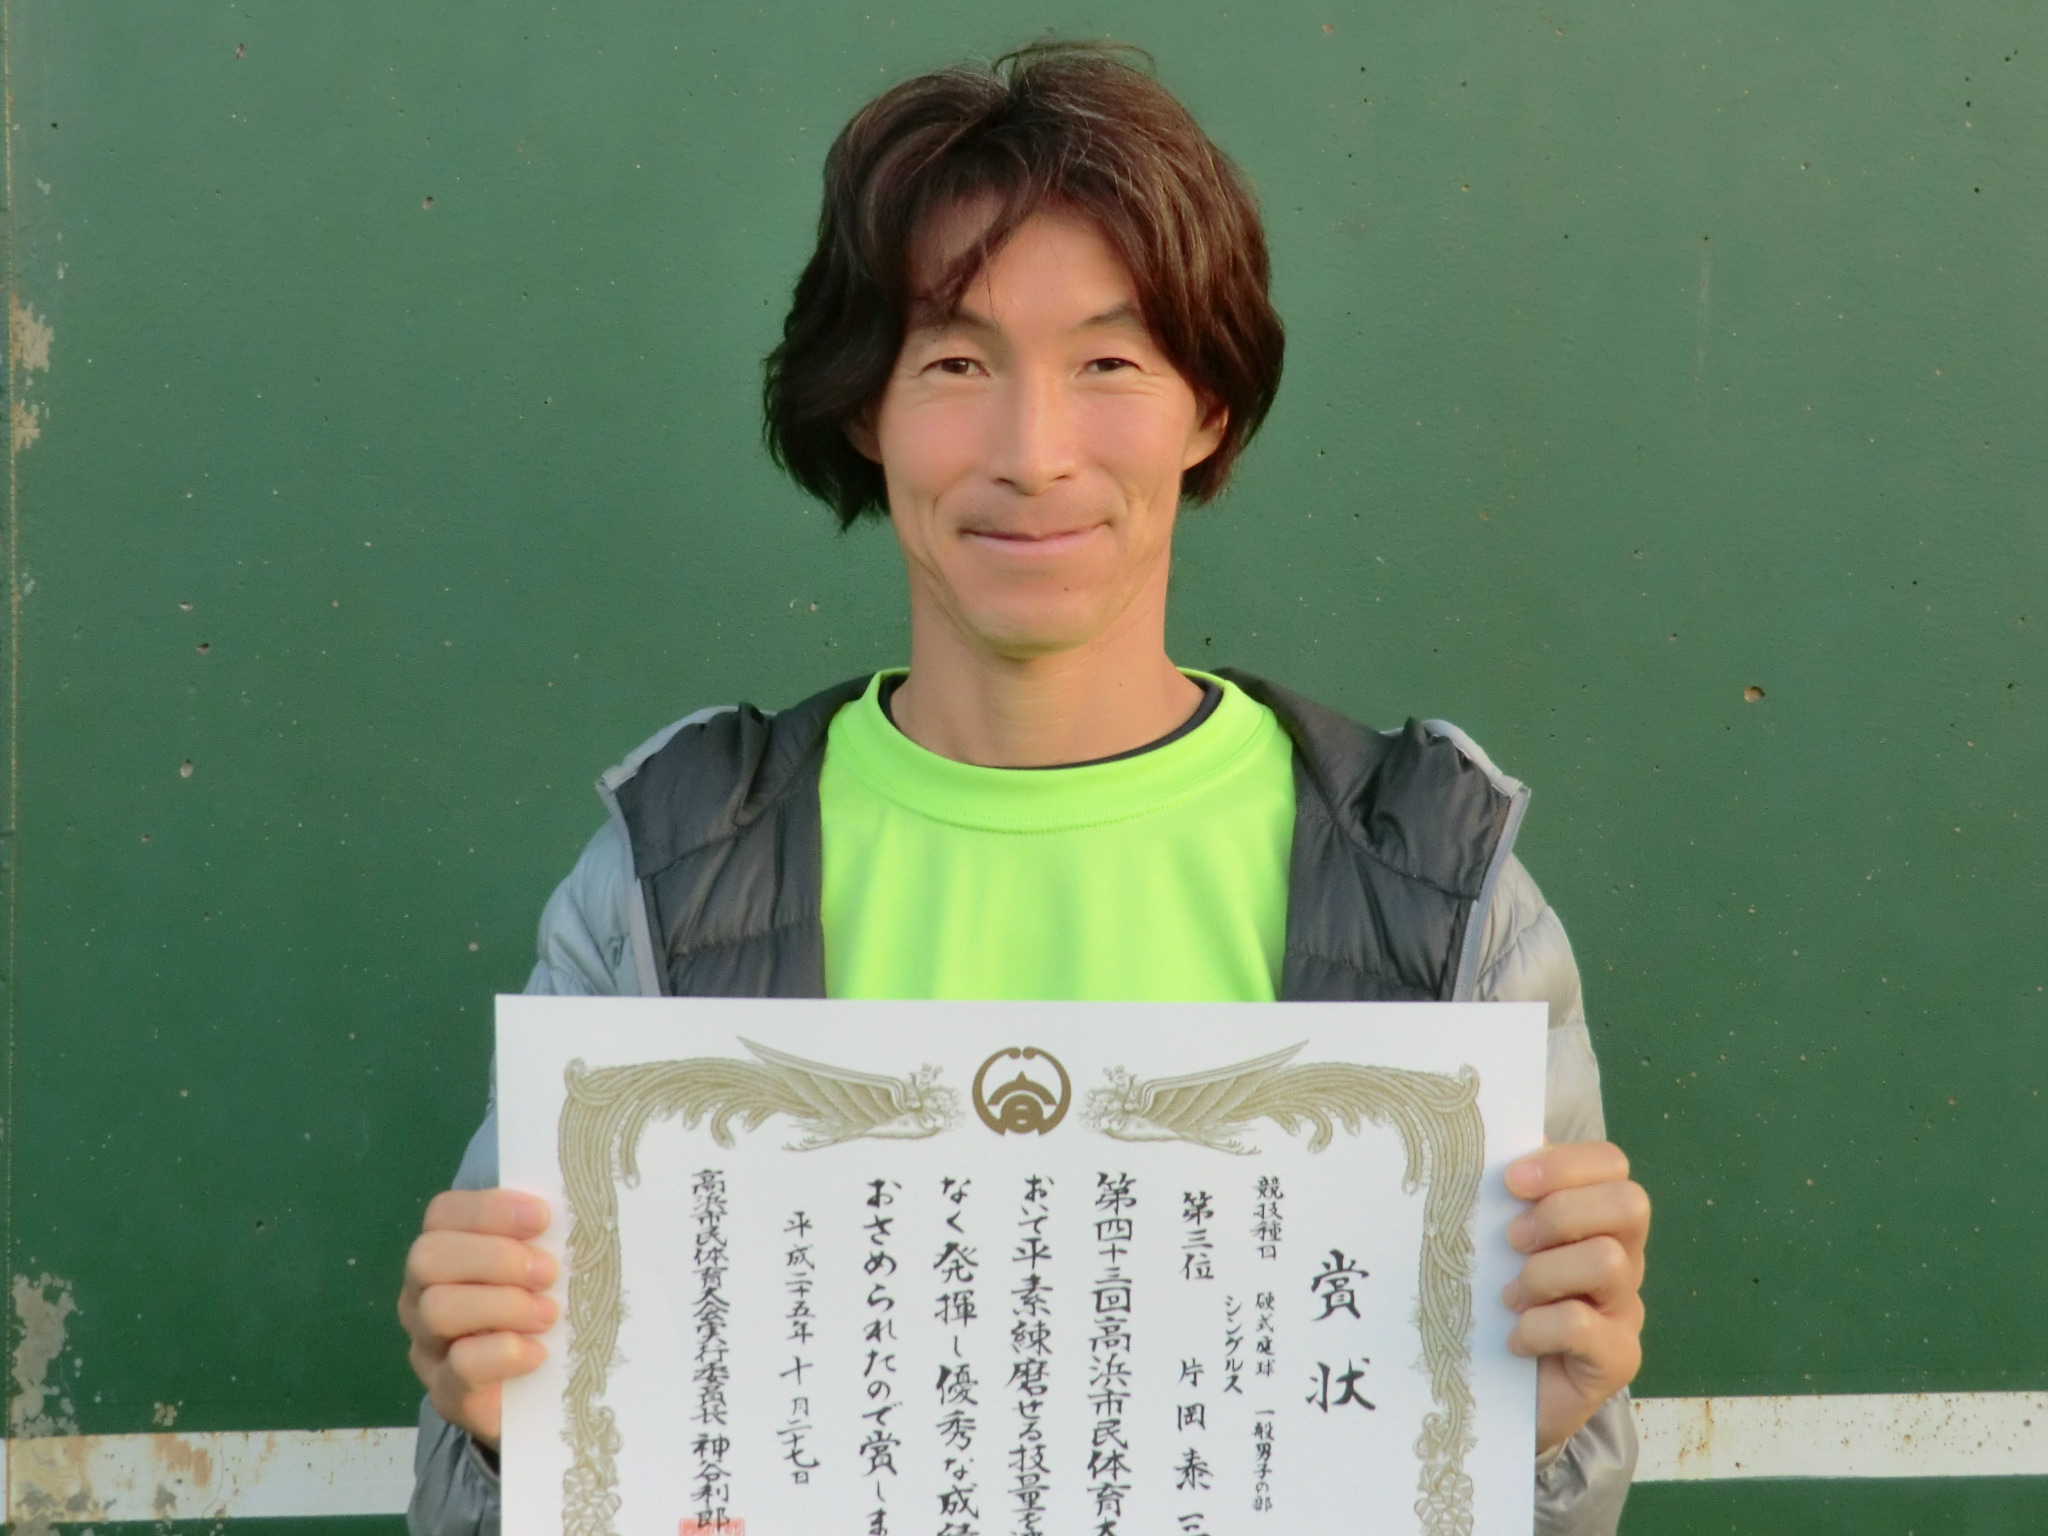 賞状
競技種目 硬式庭球 一般男子の部
シングルス
第三位 片岡泰三
第四十三回高浜市民体育大
おいて平素練磨せる技量を
なく発揮し優秀な成績
おさめられたので賞しま
平成二十五年十月二十七日
高浜市民体育大会実行委員長 神谷利郎